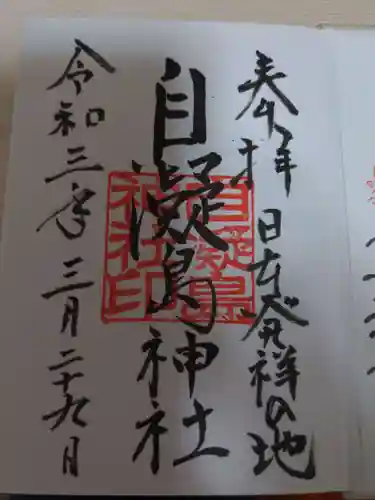 奉拝 日本発祥の地
自凝島神社
自凝島神社印
令和三年三月二十九月